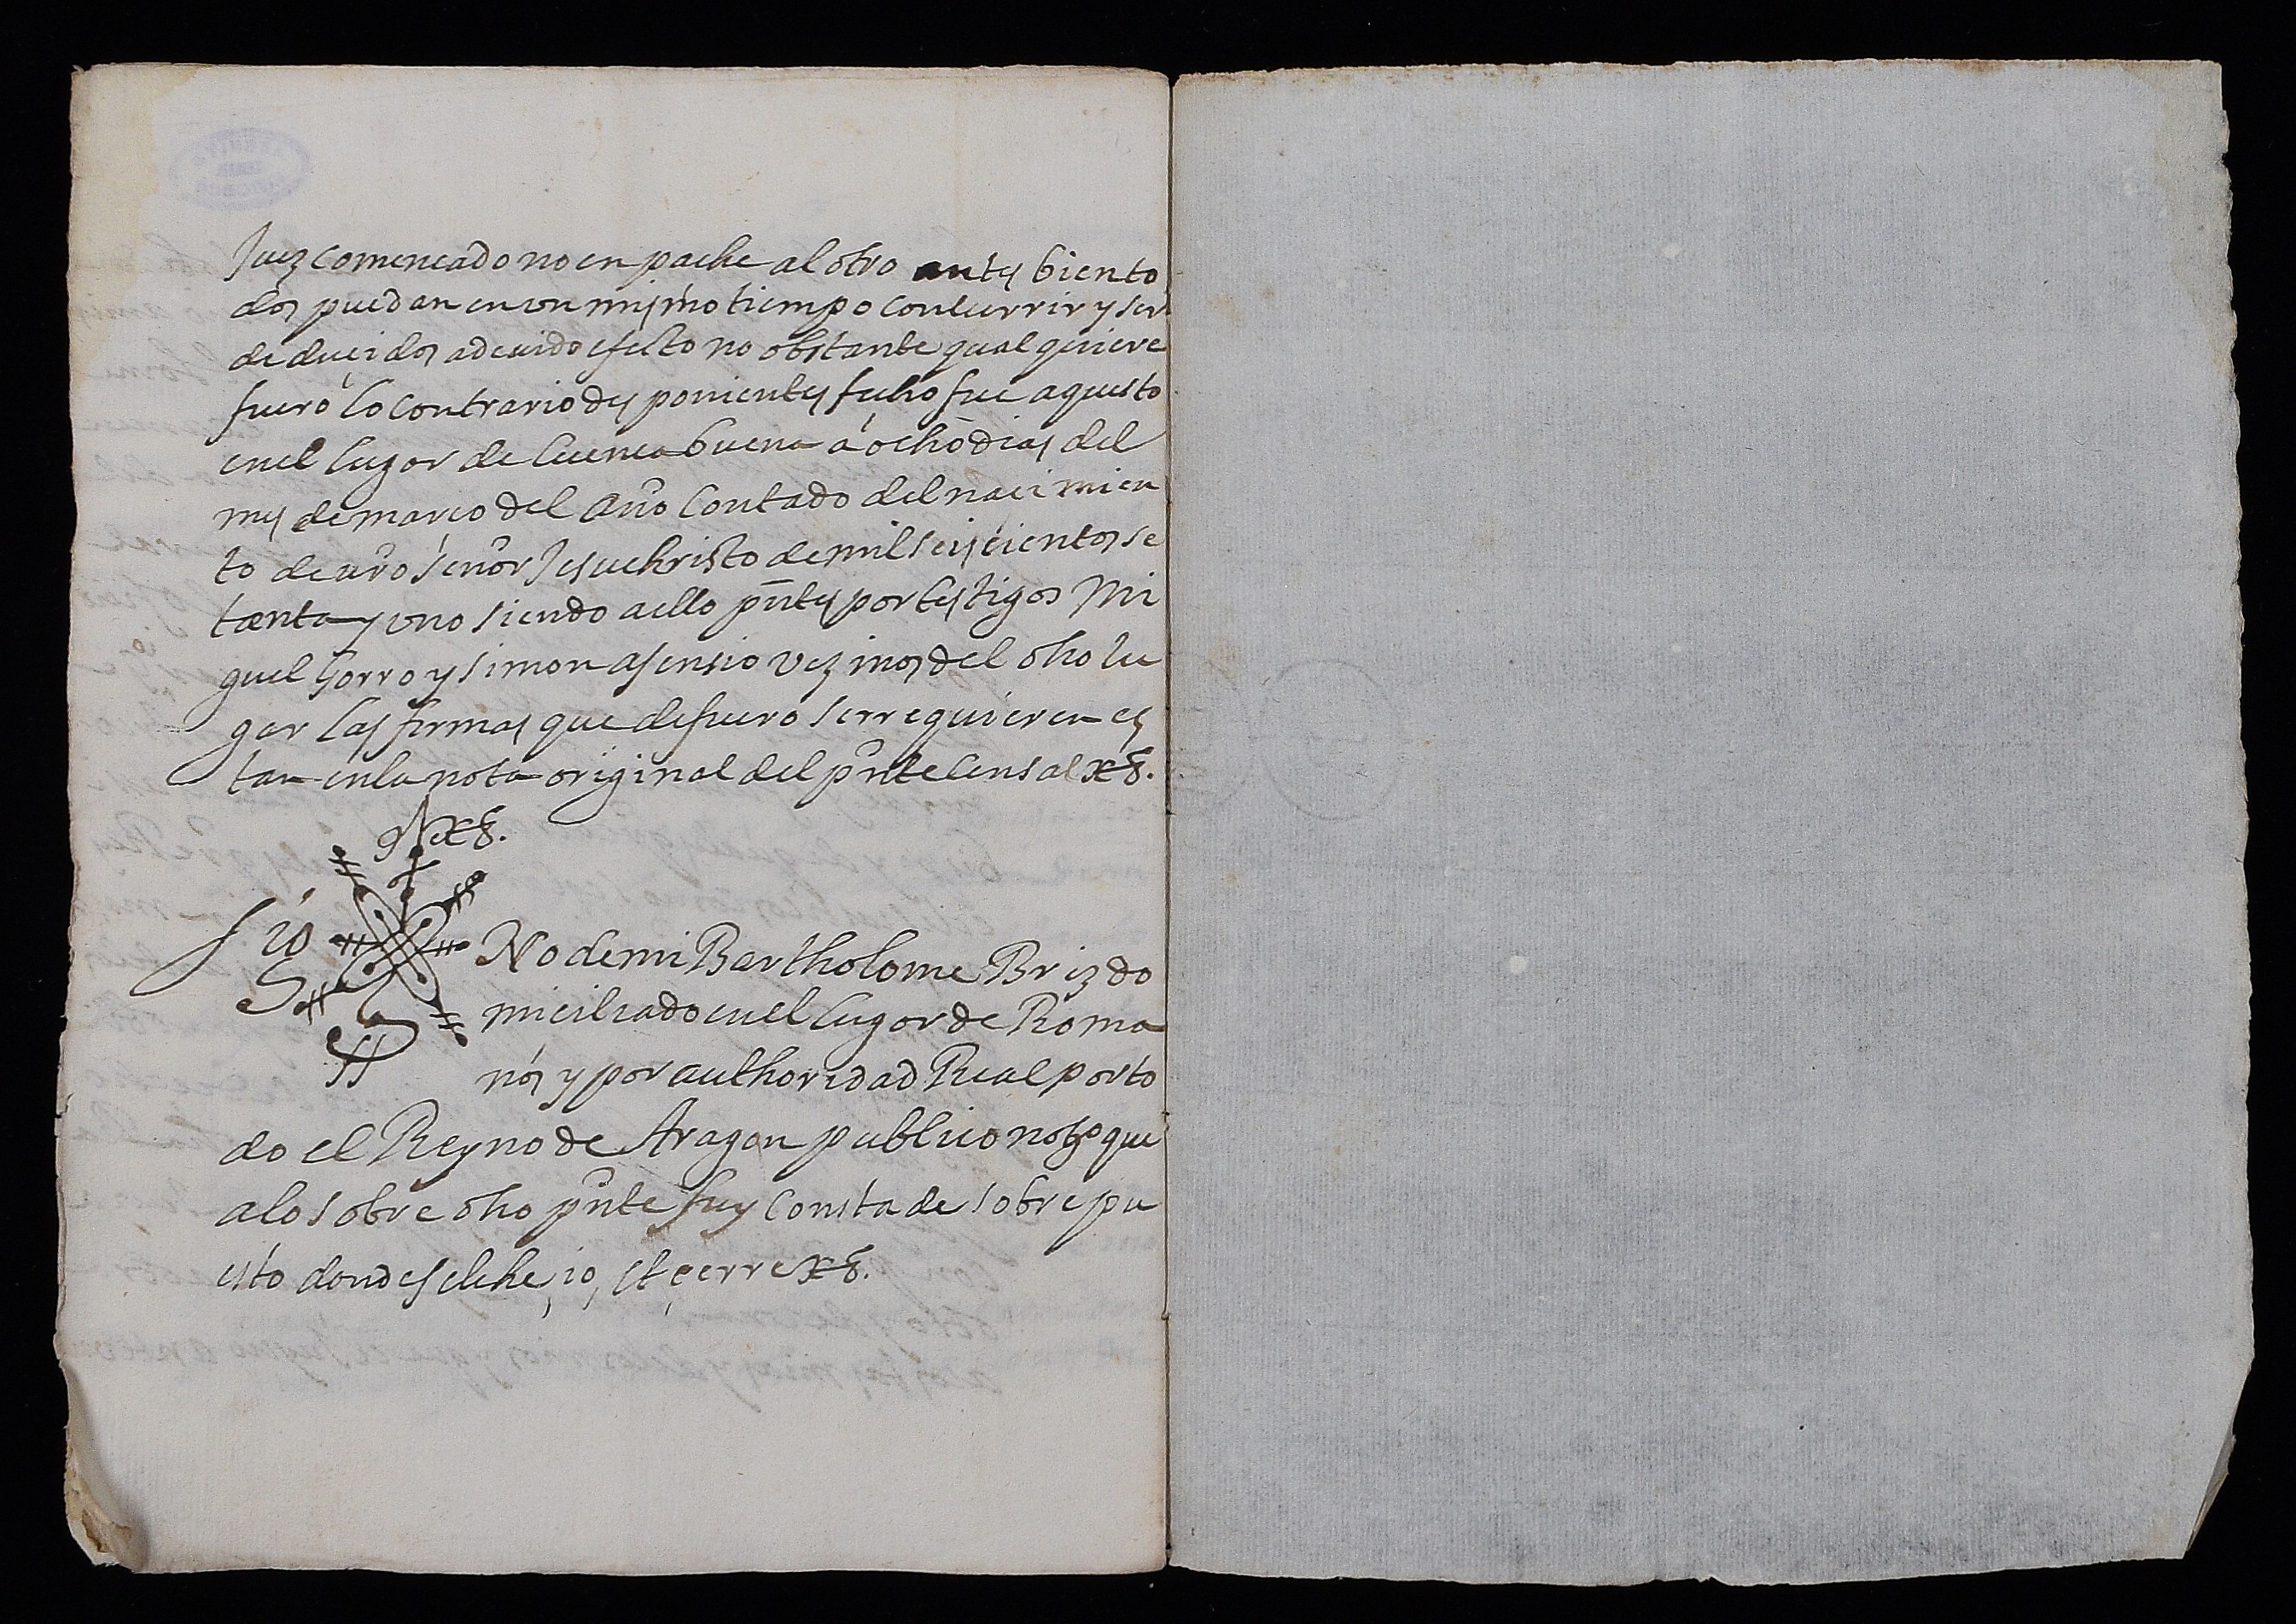 Juez comencado no en pache al otro antes bien to
dos puedan en un mismo tiempo concurrir y ser
deduçidos a deuido efecto no obstante qualquiere
fuero lo contrario desponientes fecho fue aquesto
en el lugar de Cuencabuena á ocho dias del
mes de marco del Año Contado del nacimien
to de nro Senor Jesuchristo de mil seiscientos se
tenta y uno siendo a ello pntes por testigos Mi
guel Gorro y Simon Asensio vezinos del dho lu
gar las firmas que de fuero se rrequieren es
tan en la nota original del pnte Censal
Sig No de mi Bartholome Briz do
miciliado en el lugar de Roma
nos y por authoridad Real por to
do el Reyno de Aragon publico notº que
a lo sobre dho pnte fuy Consta de sobrepu
esto donde se lehe, io, et çerre